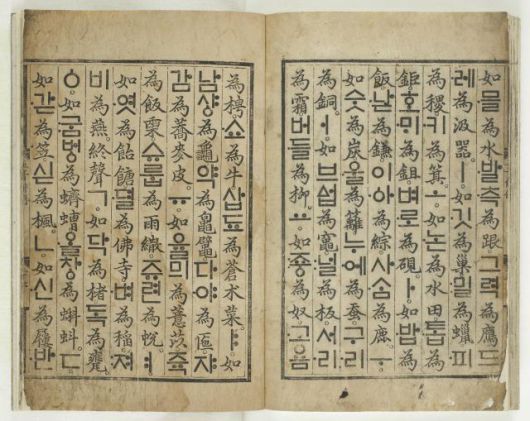 如믈為水발측為跟그력為鴈드
레為汲器ㅣ如깃為巢밀為蠟피
為稷키為箕ㅗ如논為水田톱為
鉅호ᄆᆡ為鉏벼로為硯ㅏ如밥為
飯낟為鎌이ᅌᅡ為綜사ᄉᆞᆷ為鹿ㅜ
如숫為炭울為籬누에為蚕구리
為銅ㅓ如브ᅀᅥᆸ為竈널為板서리
為霜버들為柳ㅛ如죠ᇰ為奴고욤
為梬쇼為牛삽됴為蒼朮菜ㅑ如
남샤ᇰ為龜약為鼅鼊다야為匜쟈
감為蕎麥皮ㅠ如율믜為薏苡쥭
為飯𣖄슈룹為雨繖쥬련為帨ㅕ
如엿為飴餹뎔為佛寺벼為稻져
비為燕。終聲ㄱ如닥為楮독為甕
ㆁ如굼벼ᇰ為蠐螬올차ᇰ為蝌蚪ㄷ
如갇為笠싣為楓ㄴ如신為屨반